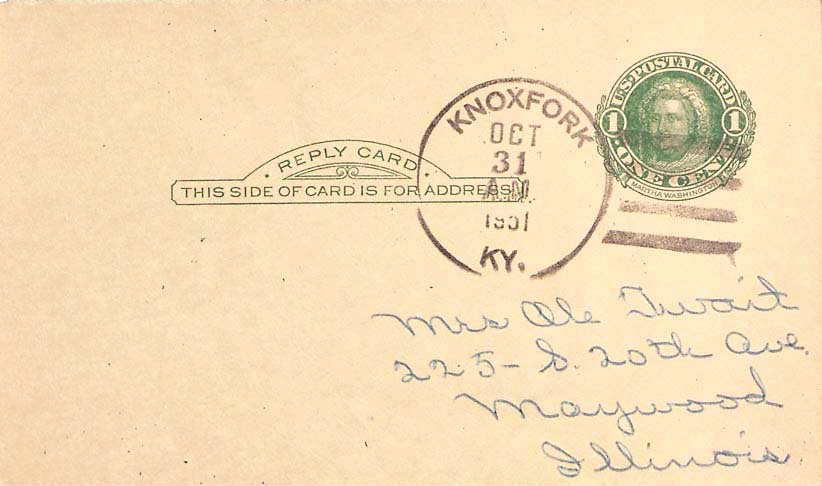 U.S. POSTAL CARD
1 1
ONE CENT
MARTHA WASHINGTON
KNOXFORK
OCT
31
A.M.
1951
KY.
REPLY CARD
THIS SIDE OF CARD IS FOR ADDRESS
Mrs Ole Twait
225 - S. 20th Ave.
Maywood
Illinois